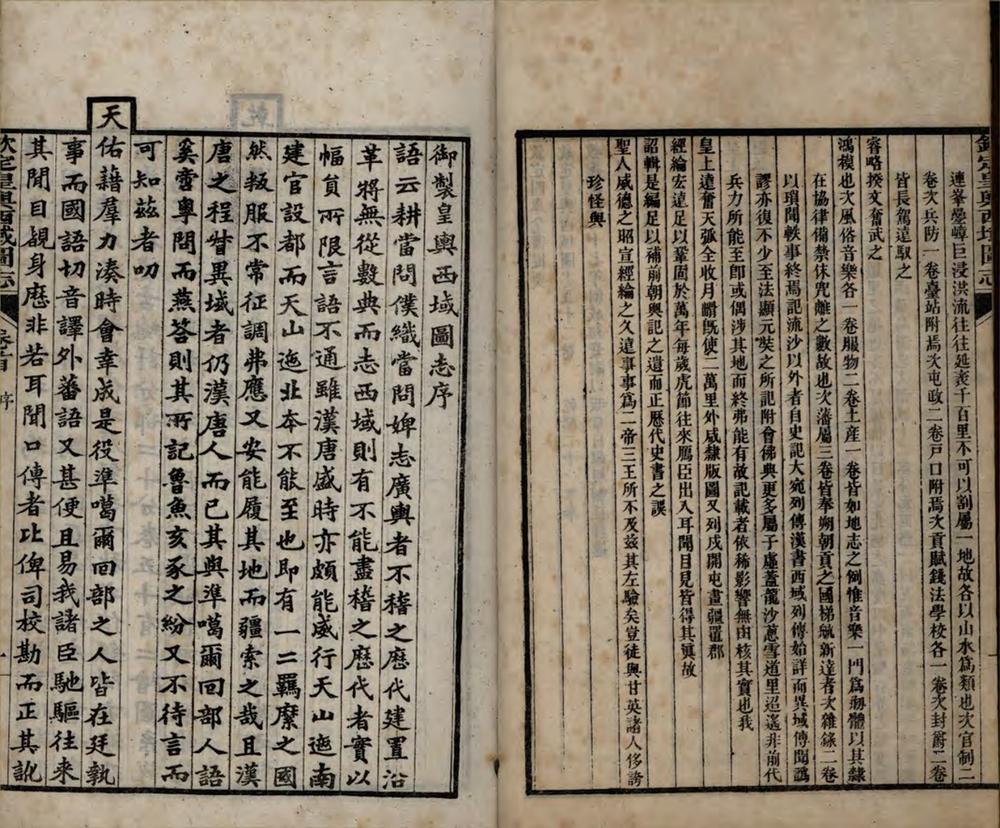 欽定皇輿西域圖志
連峯疊嶂巨浸洪流往往延袤千百里不可以割屬一地故各以山水爲類也次官制二
卷次兵防一卷臺站附焉次屯政二卷戸口附焉次貢賦錢法學校各一卷次封爵二卷
皆長駕遠馭之
睿略揆文奮武之
鴻模也次風俗音樂各一卷服物二卷土產一卷皆如地志之例惟音樂一門爲剏體以其隸
在協律備禁休兜離之數故也次藩屬三卷皆奉朔朝貢之國梯航新達者次雜錄二卷
以瑣聞軼事終焉記流沙以外者自史記大宛列傳漢書西域列傳始詳而異域傳聞譌
謬亦復不少至法顯元奘之所記附會佛典更多屬子虛蓋龍沙蔥雪道里迢遙非前代
兵力所能至卽或偶涉其地而終弗能有故記載者依稀影響無由核其實也我
皇上遠奮天弧全收月䐉旣使二萬里外咸隸版圖又列戍開屯畫疆置郡
經綸宏遠足以鞏固於萬年每歲虎節往來鴈臣出入耳聞目見皆得其眞故
詔輯是編足以補前朝輿記之遺而正歷代史書之誤
聖人威德之昭宣經綸之久遠事事爲二帝三王所不及兹其左驗矣豈徒與甘英諸人侈誇
珍怪與
御製皇輿西域圖志序
語云耕當問僕織當問婢志廣輿者不稽之歷代建置沿
革將無從數典而志西域則有不能盡稽之歷代者實以
幅員所限言語不通雖漢唐盛時亦頗能威行天山迤南
建官設都而天山迤北本不能至也即有一二羈縻之國
然叛服不常征調弗應又安能履其地而疆索之哉且漢
唐之程督異域者仍漢唐人而已其與準噶爾回部人語
奚啻粤問而燕答則其所記魯魚亥豕之紛又不待言而
可知茲者叨
天佑藉羣力湊時會幸成是役準噶爾回部之人皆在廷執
事而國語切音譯外蕃語又甚便且易我諸臣馳驅往來
其聞目覩身歷非若耳聞口傳者比俾司校勘而正其訛
欽定皇輿西域圖志 卷首 序 一